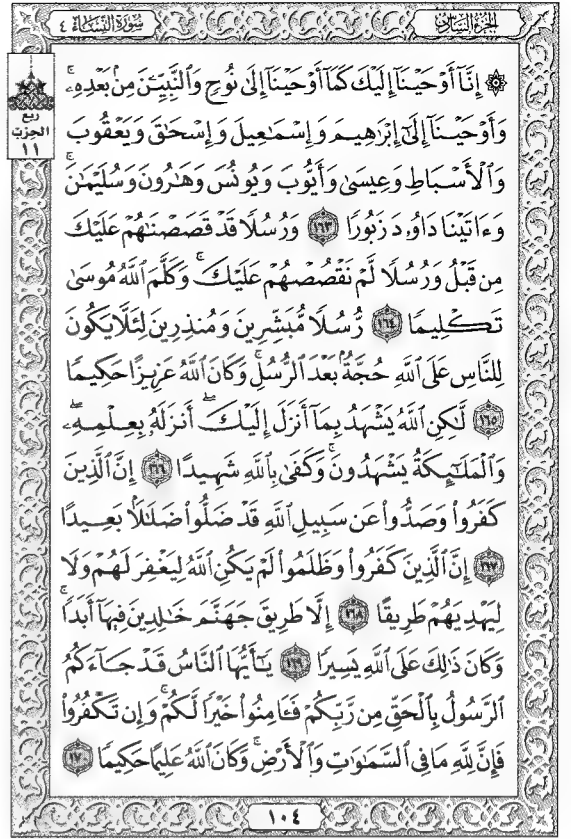 الجزء السادس
سورة النساء ٤
۞ إِنَّآ أَوْحَيْنَآ إِلَيْكَ كَمَآ أَوْحَيْنَآ إِلَىٰ نُوحٍ وَٱلنَّبِيِّـۧنَ مِنۢ بَعْدِهِۦۚ
وَأَوْحَيْنَآ إِلَىٰٓ إِبْرَٰهِيمَ وَإِسْمَـٰعِيلَ وَإِسْحَـٰقَ وَيَعْقُوبَ
وَٱلْأَسْبَاطِ وَعِيسَىٰ وَأَيُّوبَ وَيُونُسَ وَهَـٰرُونَ وَسُلَيْمَـٰنَۚ
وَءَاتَيْنَا دَاوُۥدَ زَبُورًا ١٦٣ وَرُسُلًا قَدْ قَصَصْنَـٰهُمْ عَلَيْكَ
مِن قَبْلُ وَرُسُلًا لَّمْ نَقْصُصْهُمْ عَلَيْكَۚ وَكَلَّمَ ٱللَّهُ مُوسَىٰ
تَكْلِيمًا ١٦٤ رُّسُلًا مُّبَشِّرِينَ وَمُنذِرِينَ لِئَلَّا يَكُونَ
لِلنَّاسِ عَلَى ٱللَّهِ حُجَّةٌۢ بَعْدَ ٱلرُّسُلِۚ وَكَانَ ٱللَّهُ عَزِيزًا حَكِيمًا
١٦٥ لَّـٰكِنِ ٱللَّهُ يَشْهَدُ بِمَآ أَنزَلَ إِلَيْكَۖ أَنزَلَهُۥ بِعِلْمِهِۦۖ
وَٱلْمَلَـٰٓئِكَةُ يَشْهَدُونَۚ وَكَفَىٰ بِٱللَّهِ شَهِيدًا ١٦٦ إِنَّ ٱلَّذِينَ
كَفَرُوا۟ وَصَدُّوا۟ عَن سَبِيلِ ٱللَّهِ قَدْ ضَلُّوا۟ ضَلَـٰلًۢا بَعِيدًا
١٦٧ إِنَّ ٱلَّذِينَ كَفَرُوا۟ وَظَلَمُوا۟ لَمْ يَكُنِ ٱللَّهُ لِيَغْفِرَ لَهُمْ وَلَا
لِيَهْدِيَهُمْ طَرِيقًا ١٦٨ إِلَّا طَرِيقَ جَهَنَّمَ خَـٰلِدِينَ فِيهَآ أَبَدًاۚ
وَكَانَ ذَٰلِكَ عَلَى ٱللَّهِ يَسِيرًا ١٦٩ يَـٰٓأَيُّهَا ٱلنَّاسُ قَدْ جَآءَكُمُ
ٱلرَّسُولُ بِٱلْحَقِّ مِن رَّبِّكُمْ فَـَٔامِنُوا۟ خَيْرًا لَّكُمْۚ وَإِن تَكْفُرُوا۟
فَإِنَّ لِلَّهِ مَا فِى ٱلسَّمَـٰوَٰتِ وَٱلْأَرْضِۚ وَكَانَ ٱللَّهُ عَلِيمًا حَكِيمًا ١٧٠
ربع
الحزب
١١
١٠٤